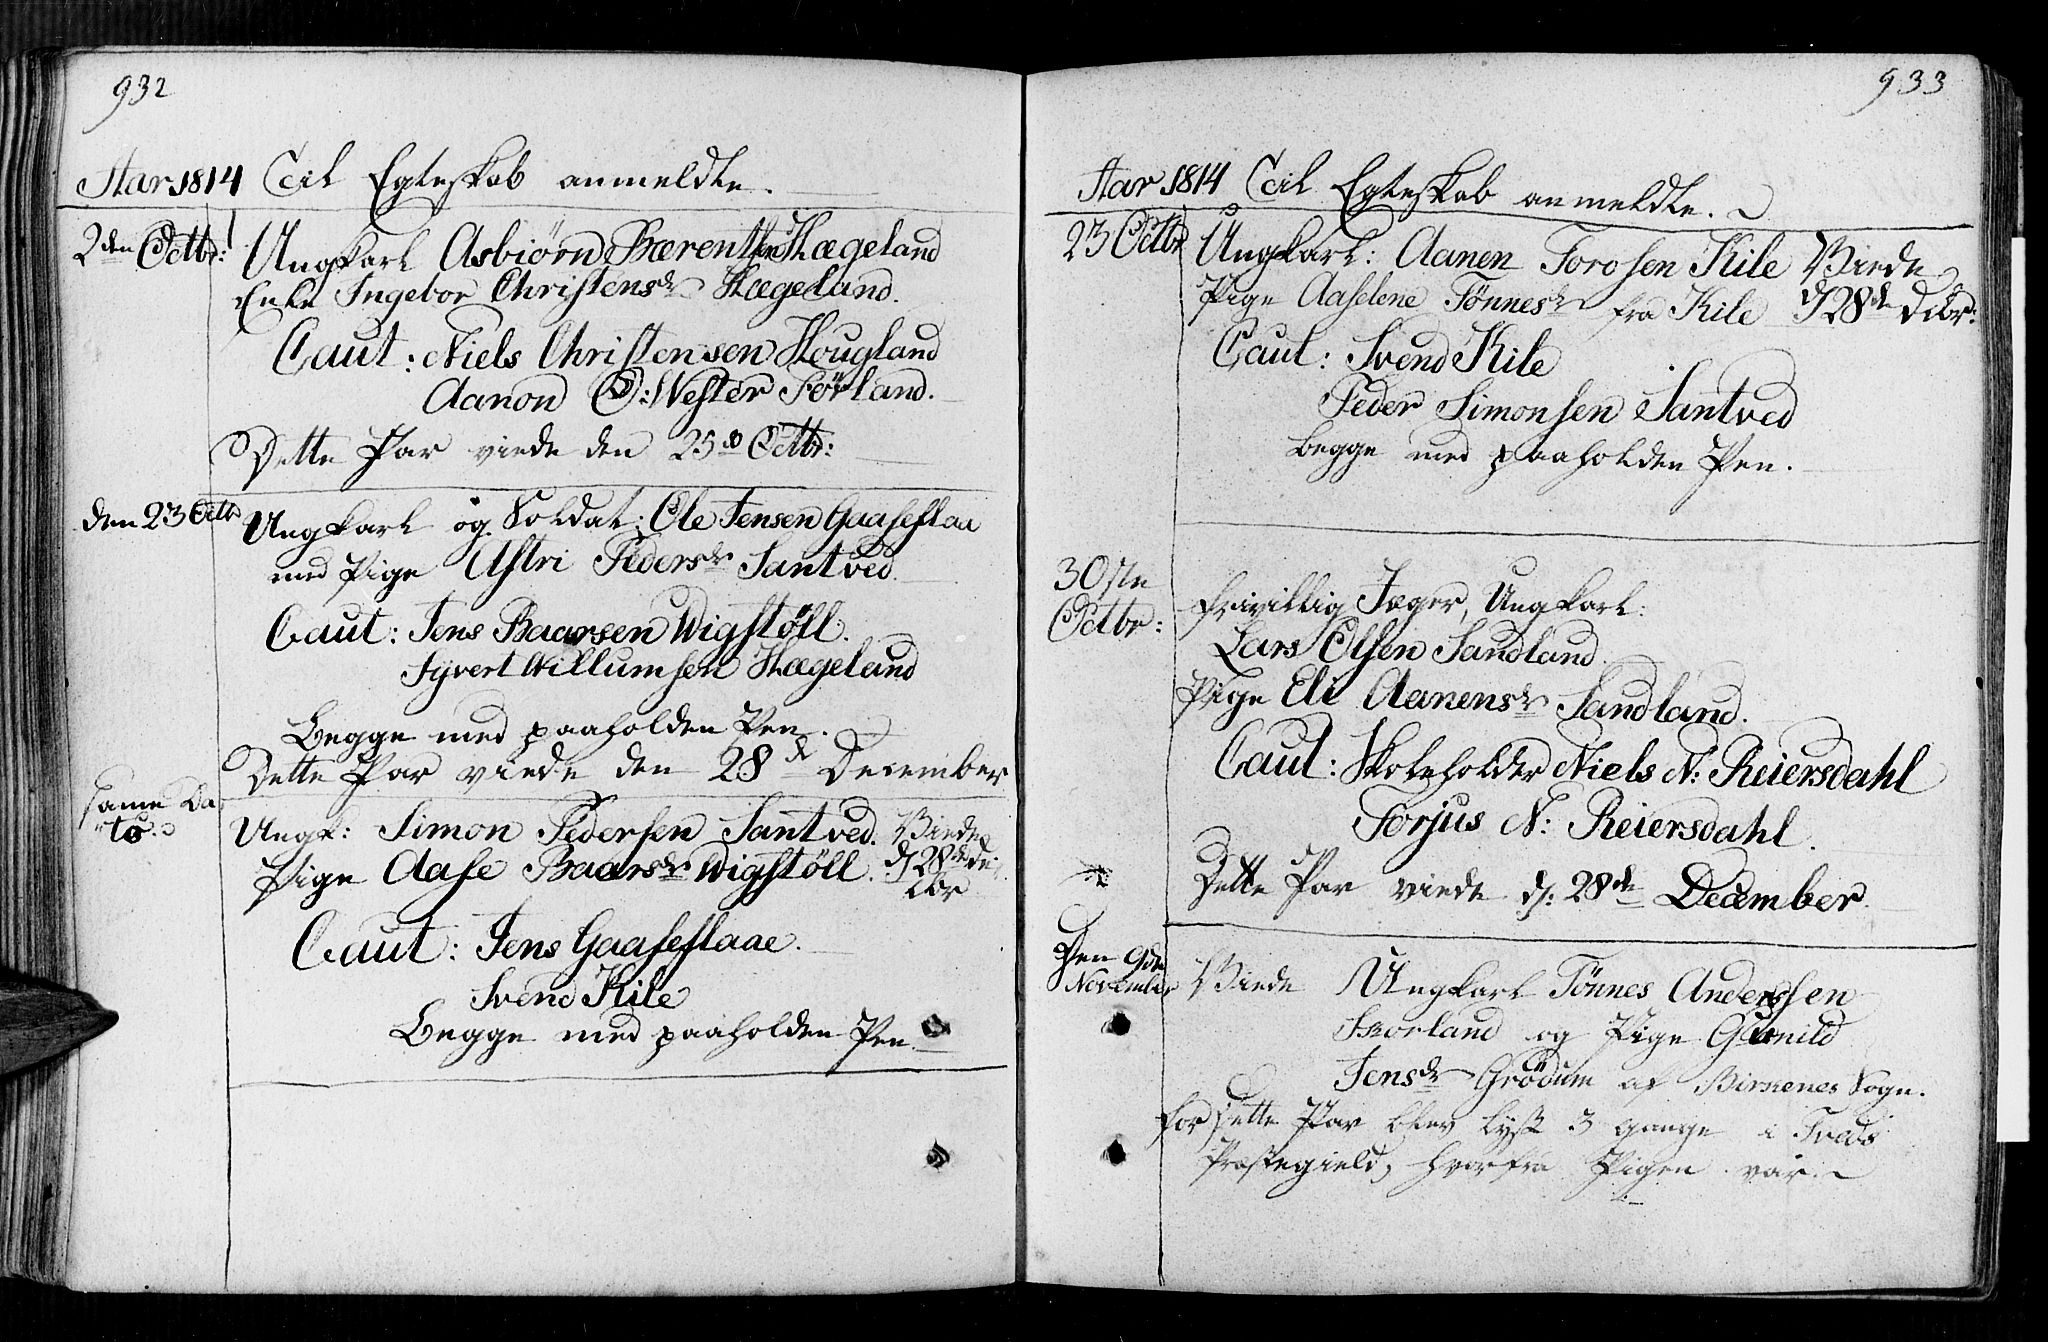 932
Aar 1814 Til Egteskab anmeldte.
2den Octbr: Ungkarl Asbiörn Bærentsen Hægeland
Enke Ingebor Christensdr Hægeland.
Caut: Niels Christensen Hougland
Aanon O: Wester Förland.
Dette Par viede den 25de Octbr:
den 23 Octb Ungkarl og Soldat: Ole Jensen Gaaseflaa
med Pige Astri Pedersdr Santved
Caut: Jens Baarsen Wigstöll.
Syvert Willumsen Hægeland
Begge med paaholden Pen.
Dette Par viede den 28de December
same Da
"to. Ungk: Simon Pedersen Santved. Viede
Pige Aase Baarsdr Wigstöll. d 28de De
cbr
Caut: Jens Gaaseflaae.
Svend Kile
Begge med paaholden Pen.
933
Aar 1814 Til Egteskab anmeldte.
23 Octbr Ungkarl: Aanen Torosen Kile Viede
Pige Aaselene Tönnesdr fra Kile d 28de Dcbr:
Caut: Svend Kile
Peder Simonsen Santved
begge med paaholden Pen.
30ste
Octbr: frivillig Jæger, Ungkarl:
Lars Olsen Sandland
Pige Eli Aanensdr Sandland.
Caut: Skoleholder Niels N: Reiersdahl
Torjus N: Reiersdahl.
Dette Par viede d: 28de December.
Den 9de
November Viede Ungkarl Tönnes Anderssen
Skorland og Pige Gunild
Jensdr Grödum af Birkenes Sogn.
for dette Par blev lyst 3 gange i Tveds
Præstegield, hvorfra Pigen var.